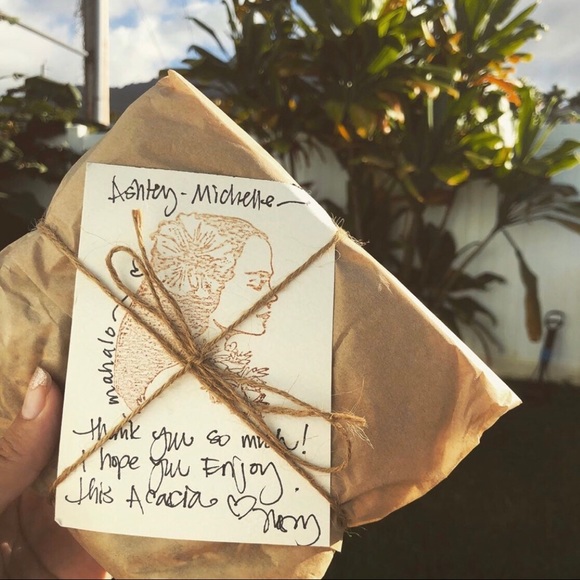 Ashley-Michelle—
mahalo~
Thank you so much!
I hope you Enjoy
this Acacia ♡